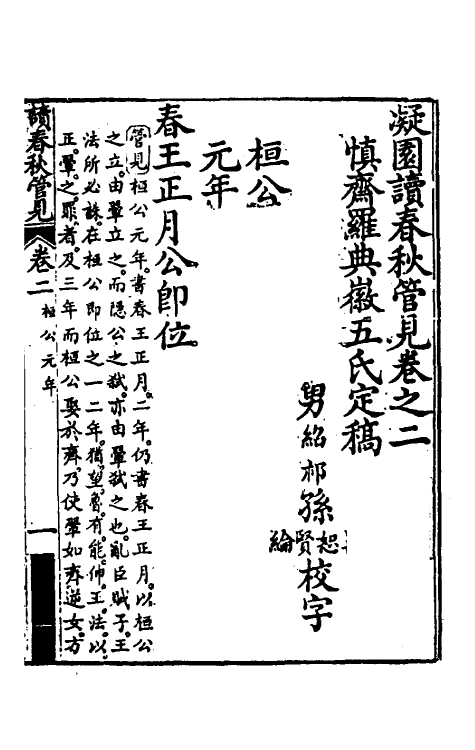 凝園讀春秋管見卷之二
慎齋羅典徽五氏定稿
男紹祁孫恕賢綸校字
桓公
元年
春王正月公即位
管見桓公元年書春王正月二年仍書春王正月以桓公
之立由翬立之而隱公之弒亦由翬弒之也亂臣賊子王
法所必誅在桓公即位之一二年猶望魯有能伸王法以
正翬之罪者及三年而桓公娶於齊乃使翬如齊逆女方
讀春秋管見 卷二 桓公元年 一